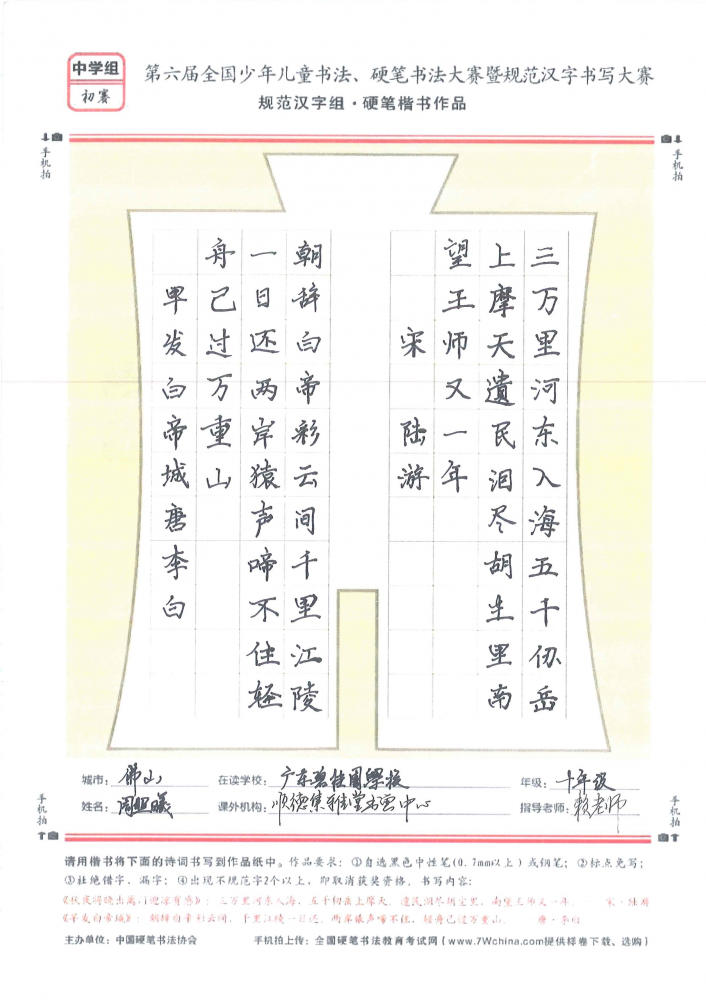 中学组
初赛
第六届全国少年儿童书法、硬笔书法大赛暨规范汉字书写大赛
规范汉字组·硬笔楷书作品
手机拍
手机拍
三万里河东入海五千仞岳
上摩天遺民泪尽胡尘里南
望王师又一年
宋 陆游
朝辞白帝彩云间千里江陵
一日还两岸猿声啼不住轻
舟已过万重山
早发白帝城唐李白
城市: 佛山 在读学校: 广东碧桂园學校 年级: 十年级
姓名: 课外机构: 顺德集雅堂书画中心 指导老师: 赖老师
手机拍
手机拍
请用楷书将下面的诗词书写到作品纸中。作品要求:①自选黑色中性笔(0.7mm以上)或钢笔;②标点免写;
③杜绝错字、漏字;④出现不规范字2个以上,即取消获奖资格。书写内容:
《秋夜将晓出篱门迎凉有感》:三万里河东入海,五千仞岳上摩天。遗民泪尽胡尘里,南望王师又一年。 宋·陆游
《早发白帝城》:朝辞白帝彩云间,千里江陵一日还。两岸猿声啼不住,轻舟已过万重山。 唐·李白
主办单位:中国硬笔书法协会 手机拍上传:全国硬笔书法教育考试网(www.7Wchina.com提供样卷下载、选购)